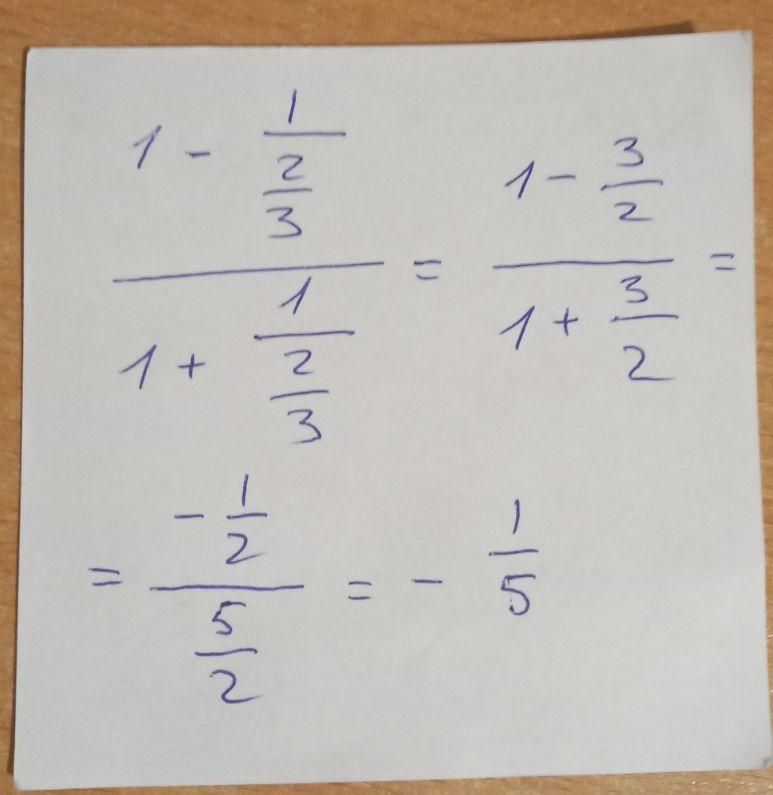 \frac{1 - \frac{1}{\frac{2}{3}}}{1 + \frac{1}{\frac{2}{3}}} = \frac{1 - \frac{3}{2}}{1 + \frac{3}{2}} =
= \frac{-\frac{1}{2}}{\frac{5}{2}} = -\frac{1}{5}